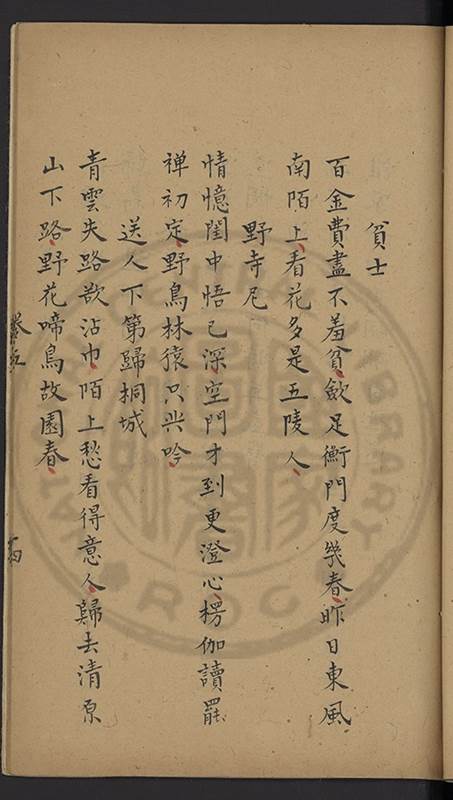 貧士
百金費盡不羞貧歛足衡門度幾春昨日東風
南陌上看花多是五陵人
野寺尼
情憶閨中悟已深空門才到更澄心楞伽讀罷
禅初定野鳥林猿只共吟
送人下第歸桐城
青雲失路欲沾巾陌上愁看得意人歸去清原
山下路野花啼鳥故園春
卷五